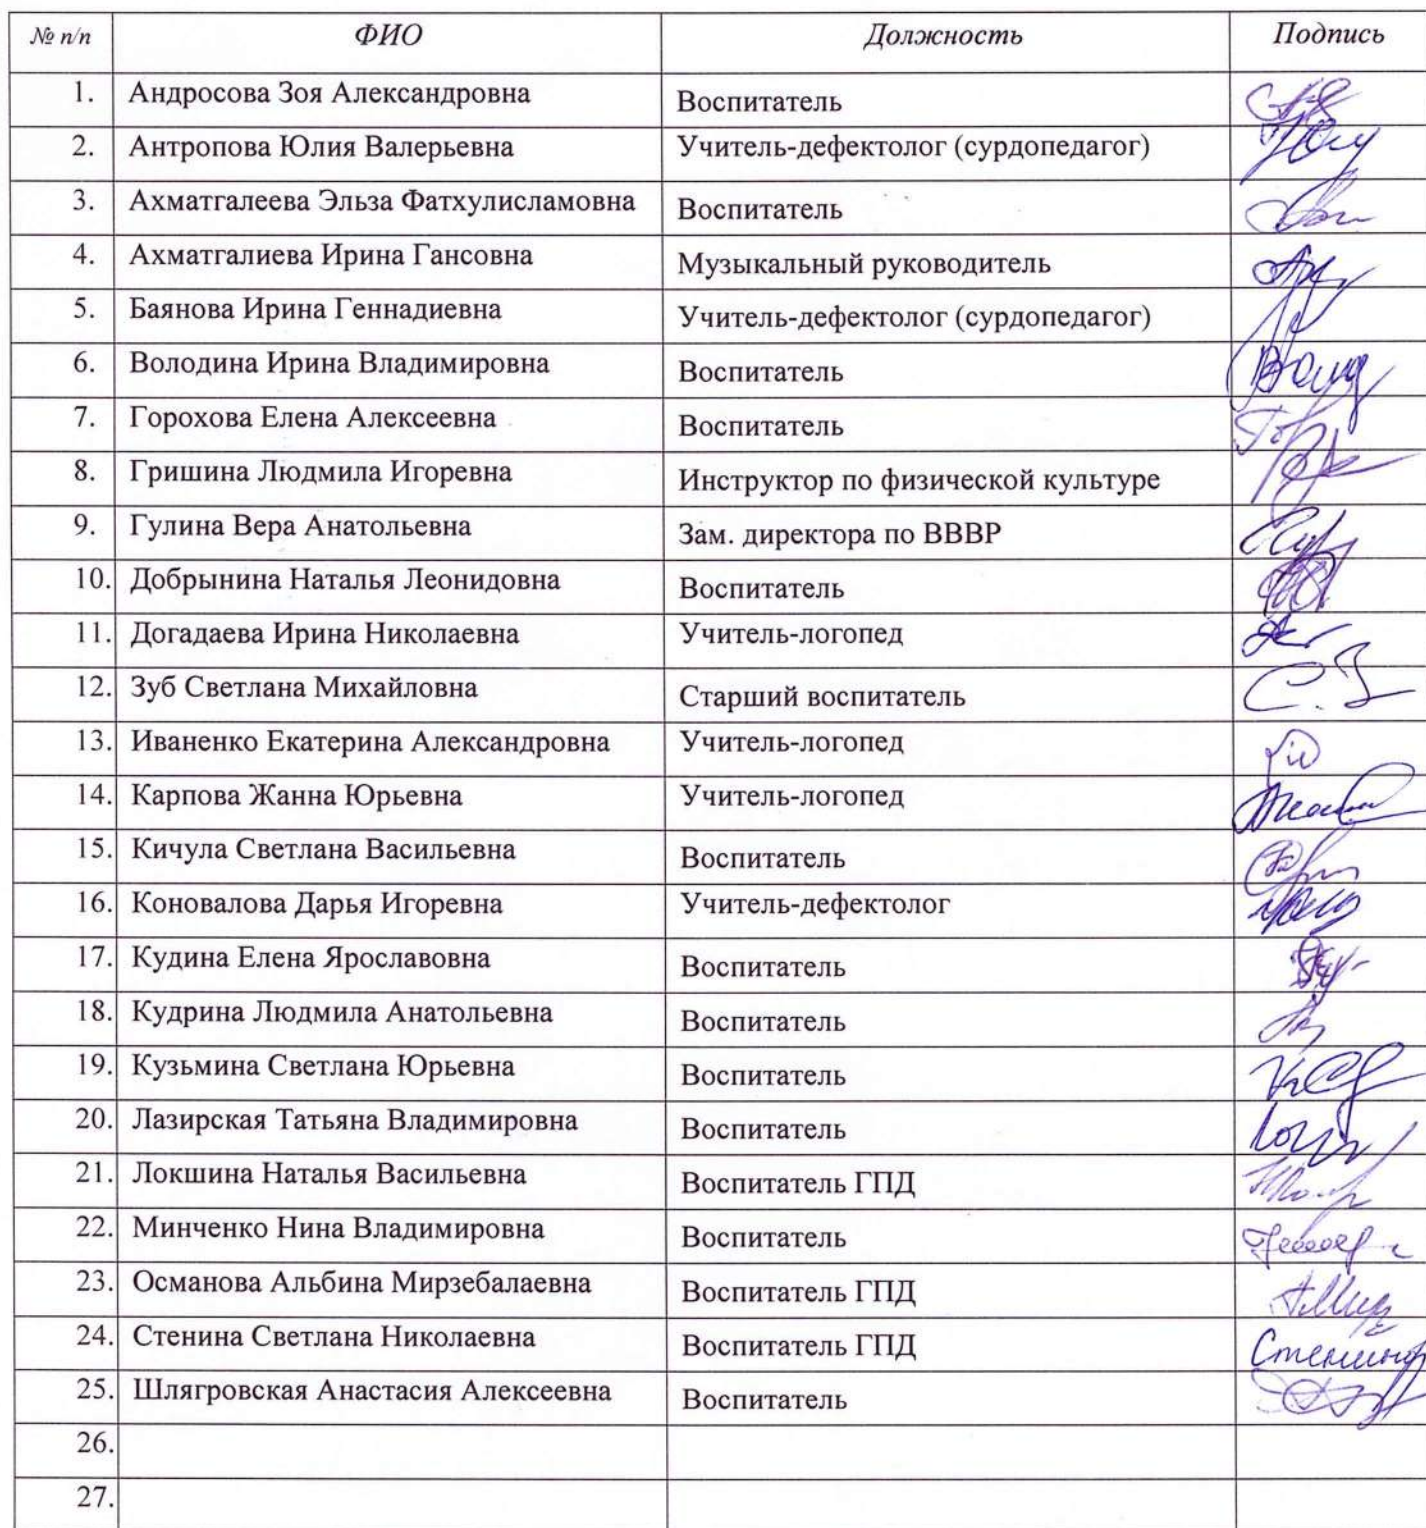 № п/п ФИО Должность Подпись
1. Андросова Зоя Александровна Воспитатель
2. Антропова Юлия Валерьевна Учитель-дефектолог (сурдопедагог)
3. Ахматгалеева Эльза Фатхулисламовна Воспитатель
4. Ахматгалиева Ирина Гансовна Музыкальный руководитель
5. Баянова Ирина Геннадиевна Учитель-дефектолог (сурдопедагог)
6. Володина Ирина Владимировна Воспитатель
7. Горохова Елена Алексеевна Воспитатель
8. Гришина Людмила Игоревна Инструктор по физической культуре
9. Гулина Вера Анатольевна Зам. директора по ВВВР
10. Добрынина Наталья Леонидовна Воспитатель
11. Догадаева Ирина Николаевна Учитель-логопед
12. Зуб Светлана Михайловна Старший воспитатель
13. Иваненко Екатерина Александровна Учитель-логопед
14. Карпова Жанна Юрьевна Учитель-логопед
15. Кичула Светлана Васильевна Воспитатель
16. Коновалова Дарья Игоревна Учитель-дефектолог
17. Кудина Елена Ярославовна Воспитатель
18. Кудрина Людмила Анатольевна Воспитатель
19. Кузьмина Светлана Юрьевна Воспитатель
20. Лазирская Татьяна Владимировна Воспитатель
21. Локшина Наталья Васильевна Воспитатель ГПД
22. Минченко Нина Владимировна Воспитатель
23. Османова Альбина Мирзебалаевна Воспитатель ГПД
24. Стенина Светлана Николаевна Воспитатель ГПД
25. Шлягровская Анастасия Алексеевна Воспитатель
26.
27.